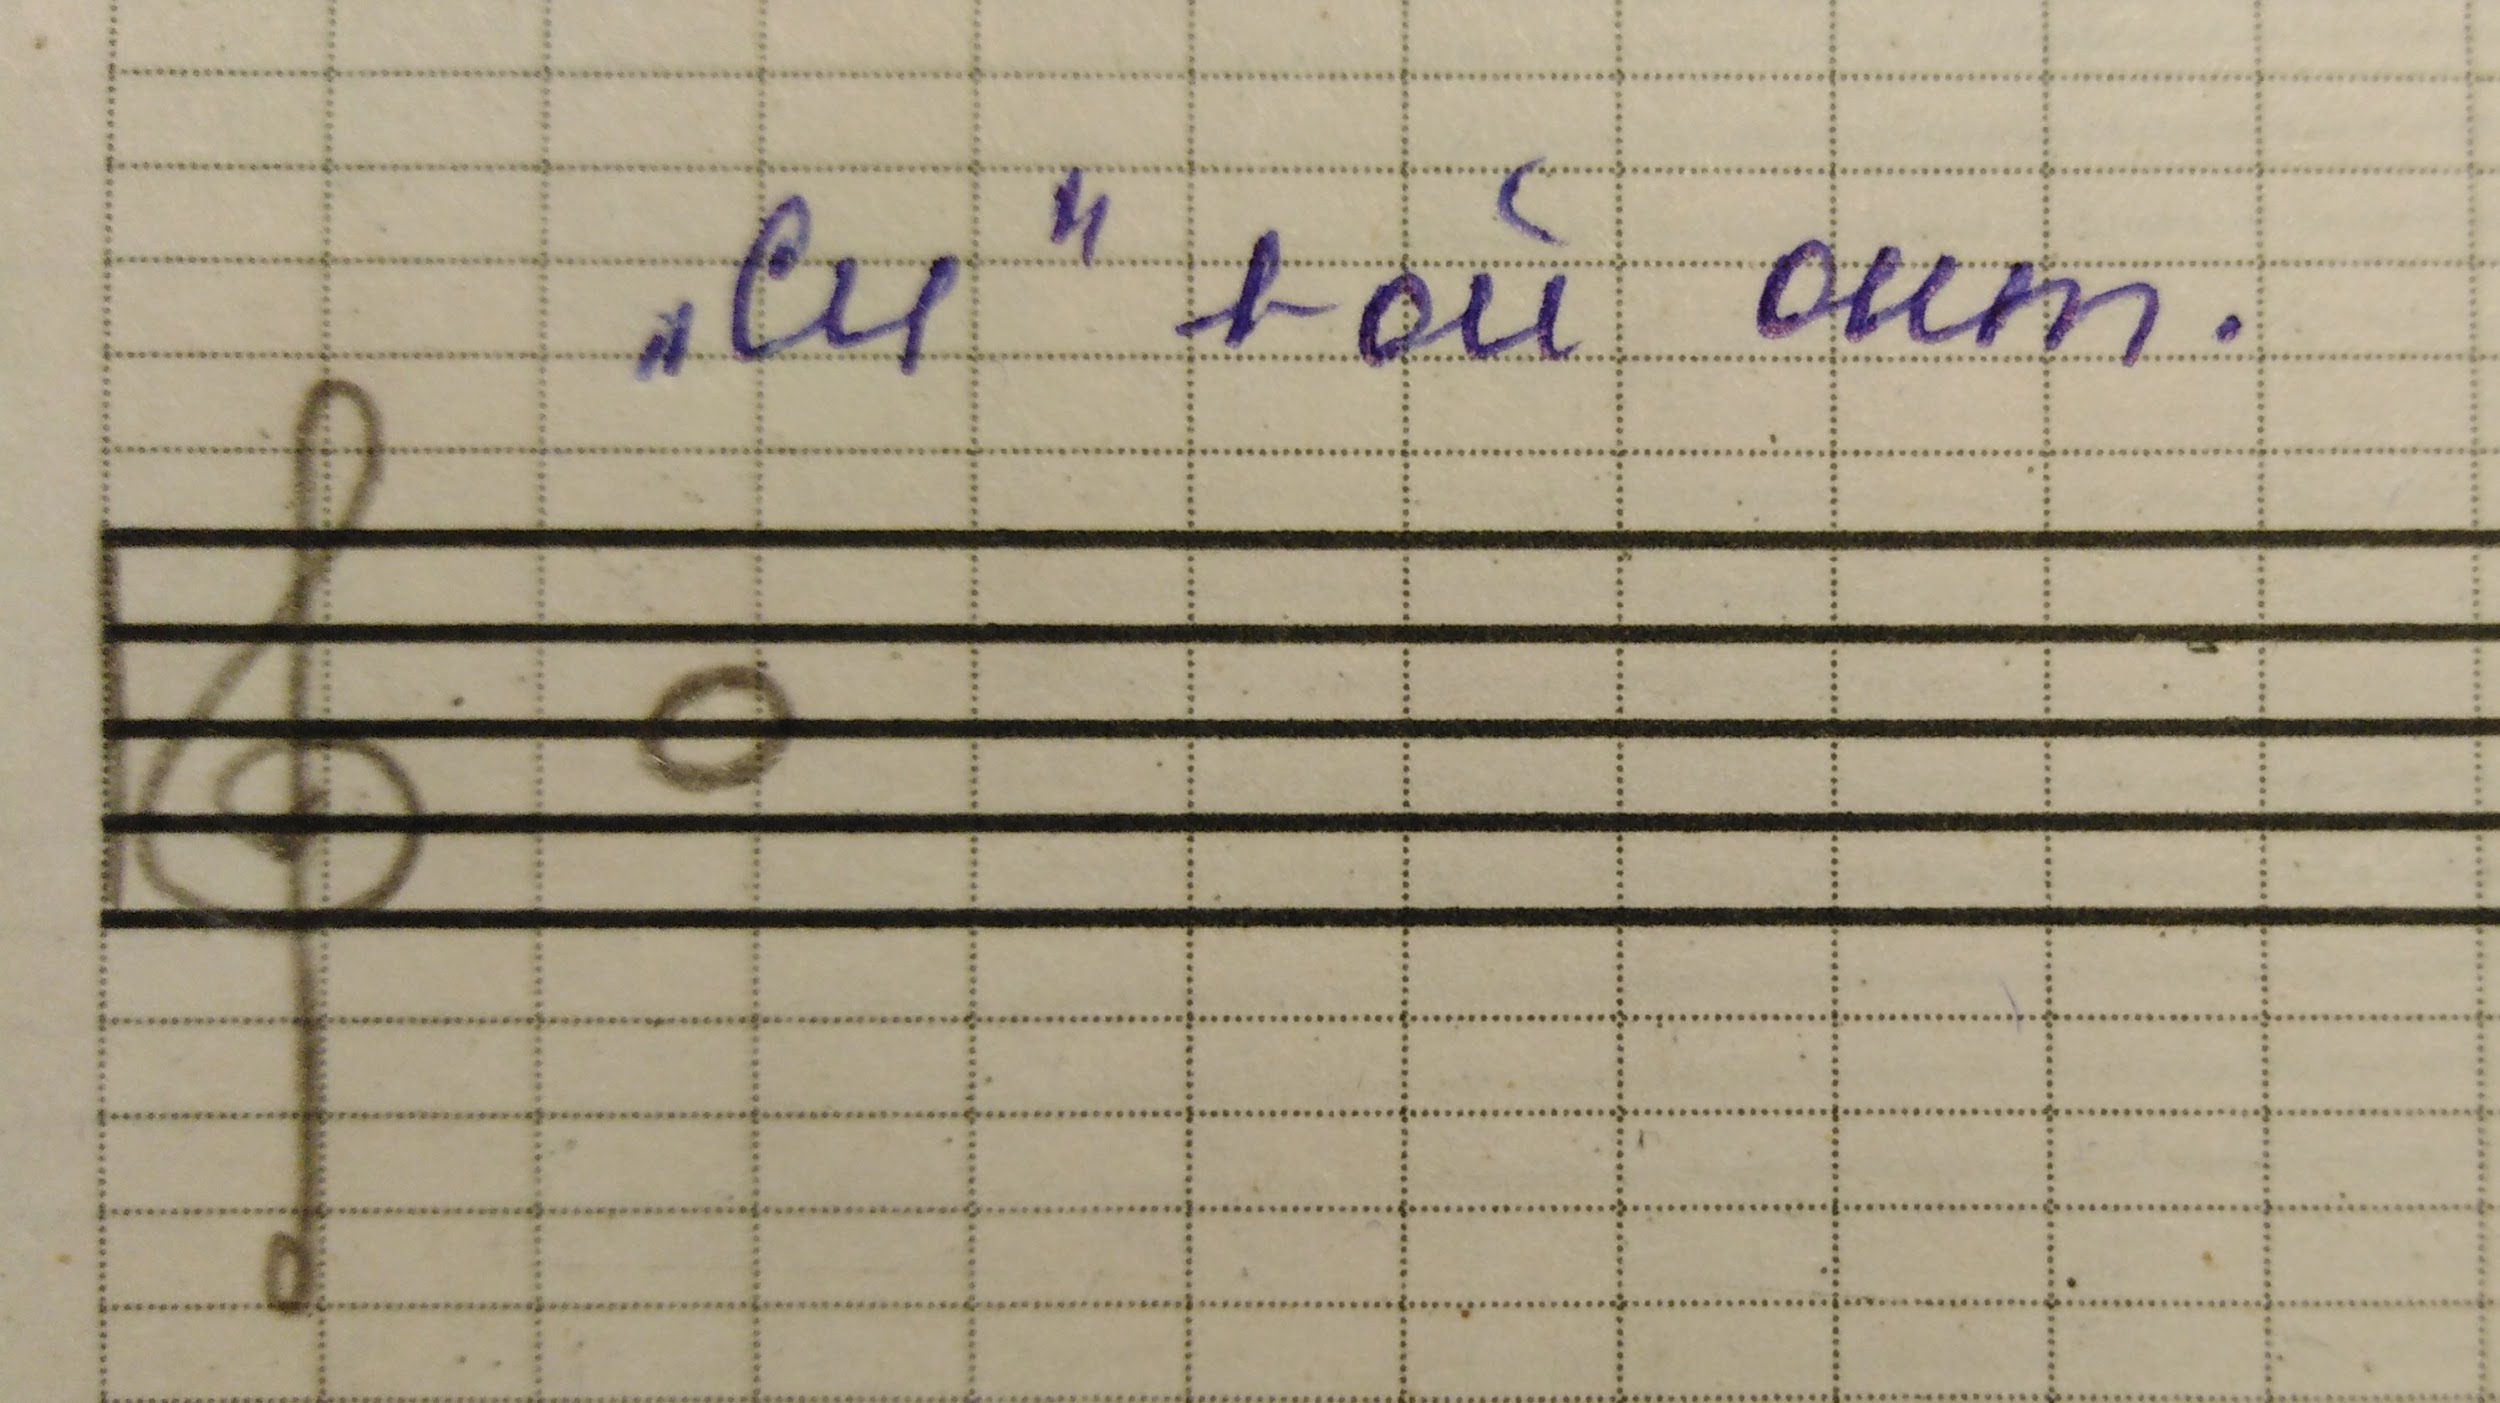 „Си" 1-ой окт.